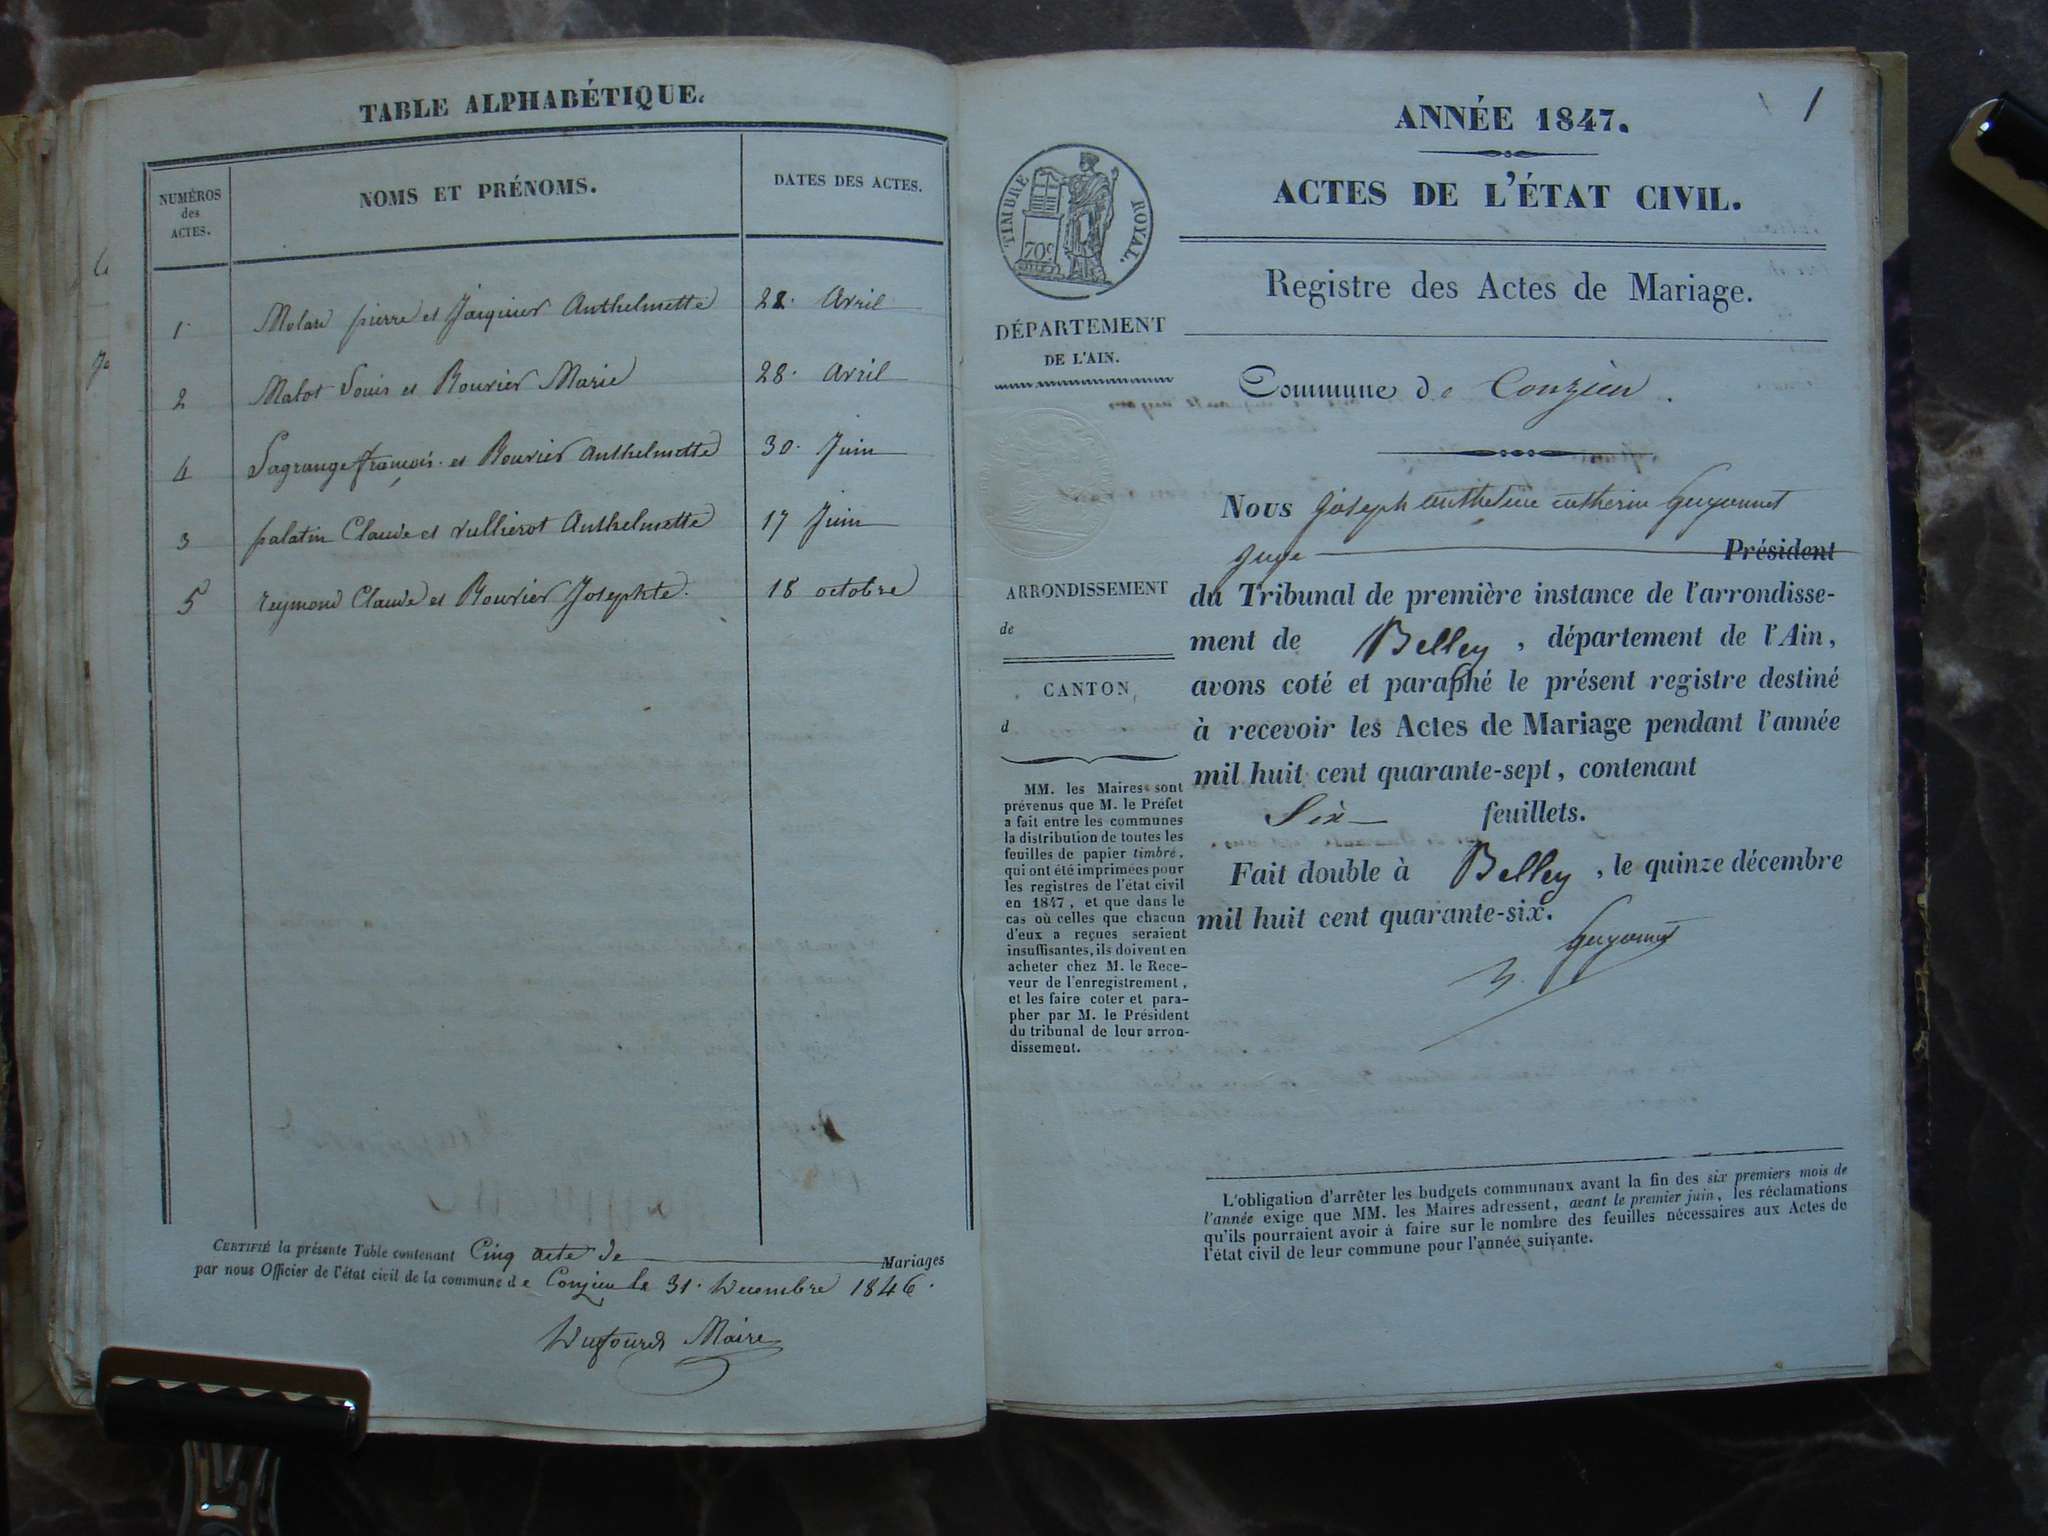 TABLE ALPHABÉTIQUE.
NUMÉROS
des
ACTES.
NOMS ET PRÉNOMS.
DATES DES ACTES.
1 Molard pierre et Jacquier Anthelmette 28. Avril
2 Malot Louis et Bouvier Marie 28. Avril
4 Lagrange françois et Bouvier Anthelmette 30. Juin
3 palatin Claude et Vullierot Anthelmette 17 Juin
5 reymond Claude et Bouvier Josephte. 18 octobre
CERTIFIÉ la présente Table contenant Cinq acte de Mariages
par nous Officier de l'état civil de la commune de Conzieu le 31. Décembre 1846.
Dufour Maire
1
ANNÉE 1847.
ACTES DE L'ÉTAT CIVIL.
TIMBRE ROYAL.
70c
Registre des Actes de Mariage.
DÉPARTEMENT
DE L'AIN.
Commune de Conzieu.
Nous Joseph anthelme Guyonnet
juge Président
du Tribunal de première instance de l'arrondisse-
ment de Belley, département de l'Ain,
avons coté et paraphé le présent registre destiné
à recevoir les Actes de Mariage pendant l'année
mil huit cent quarante-sept, contenant
Six feuillets.
Fait double à Belley, le quinze décembre
mil huit cent quarante-six.
Guyonnet
ARRONDISSEMENT
de
CANTON
d
MM. les Maires sont
prévenus que M. le Préfet
a fait entre les communes
la distribution de toutes les
feuilles de papier timbré,
qui ont été imprimées pour
les registres de l'état civil
en 1847, et que dans le
cas où celles que chacun
d'eux a reçues seraient
insuffisantes, ils doivent en
acheter chez M. le Rece-
veur de l'enregistrement,
et les faire coter et para-
pher par M. le Président
du tribunal de leur arron-
dissement.
L'obligation d'arrêter les budgets communaux avant la fin des six premiers mois de
l'année exige que MM. les Maires adressent, avant le premier juin, les réclamations
qu'ils pourraient avoir à faire sur le nombre des feuilles nécessaires aux Actes de
l'état civil de leur commune pour l'année suivante.